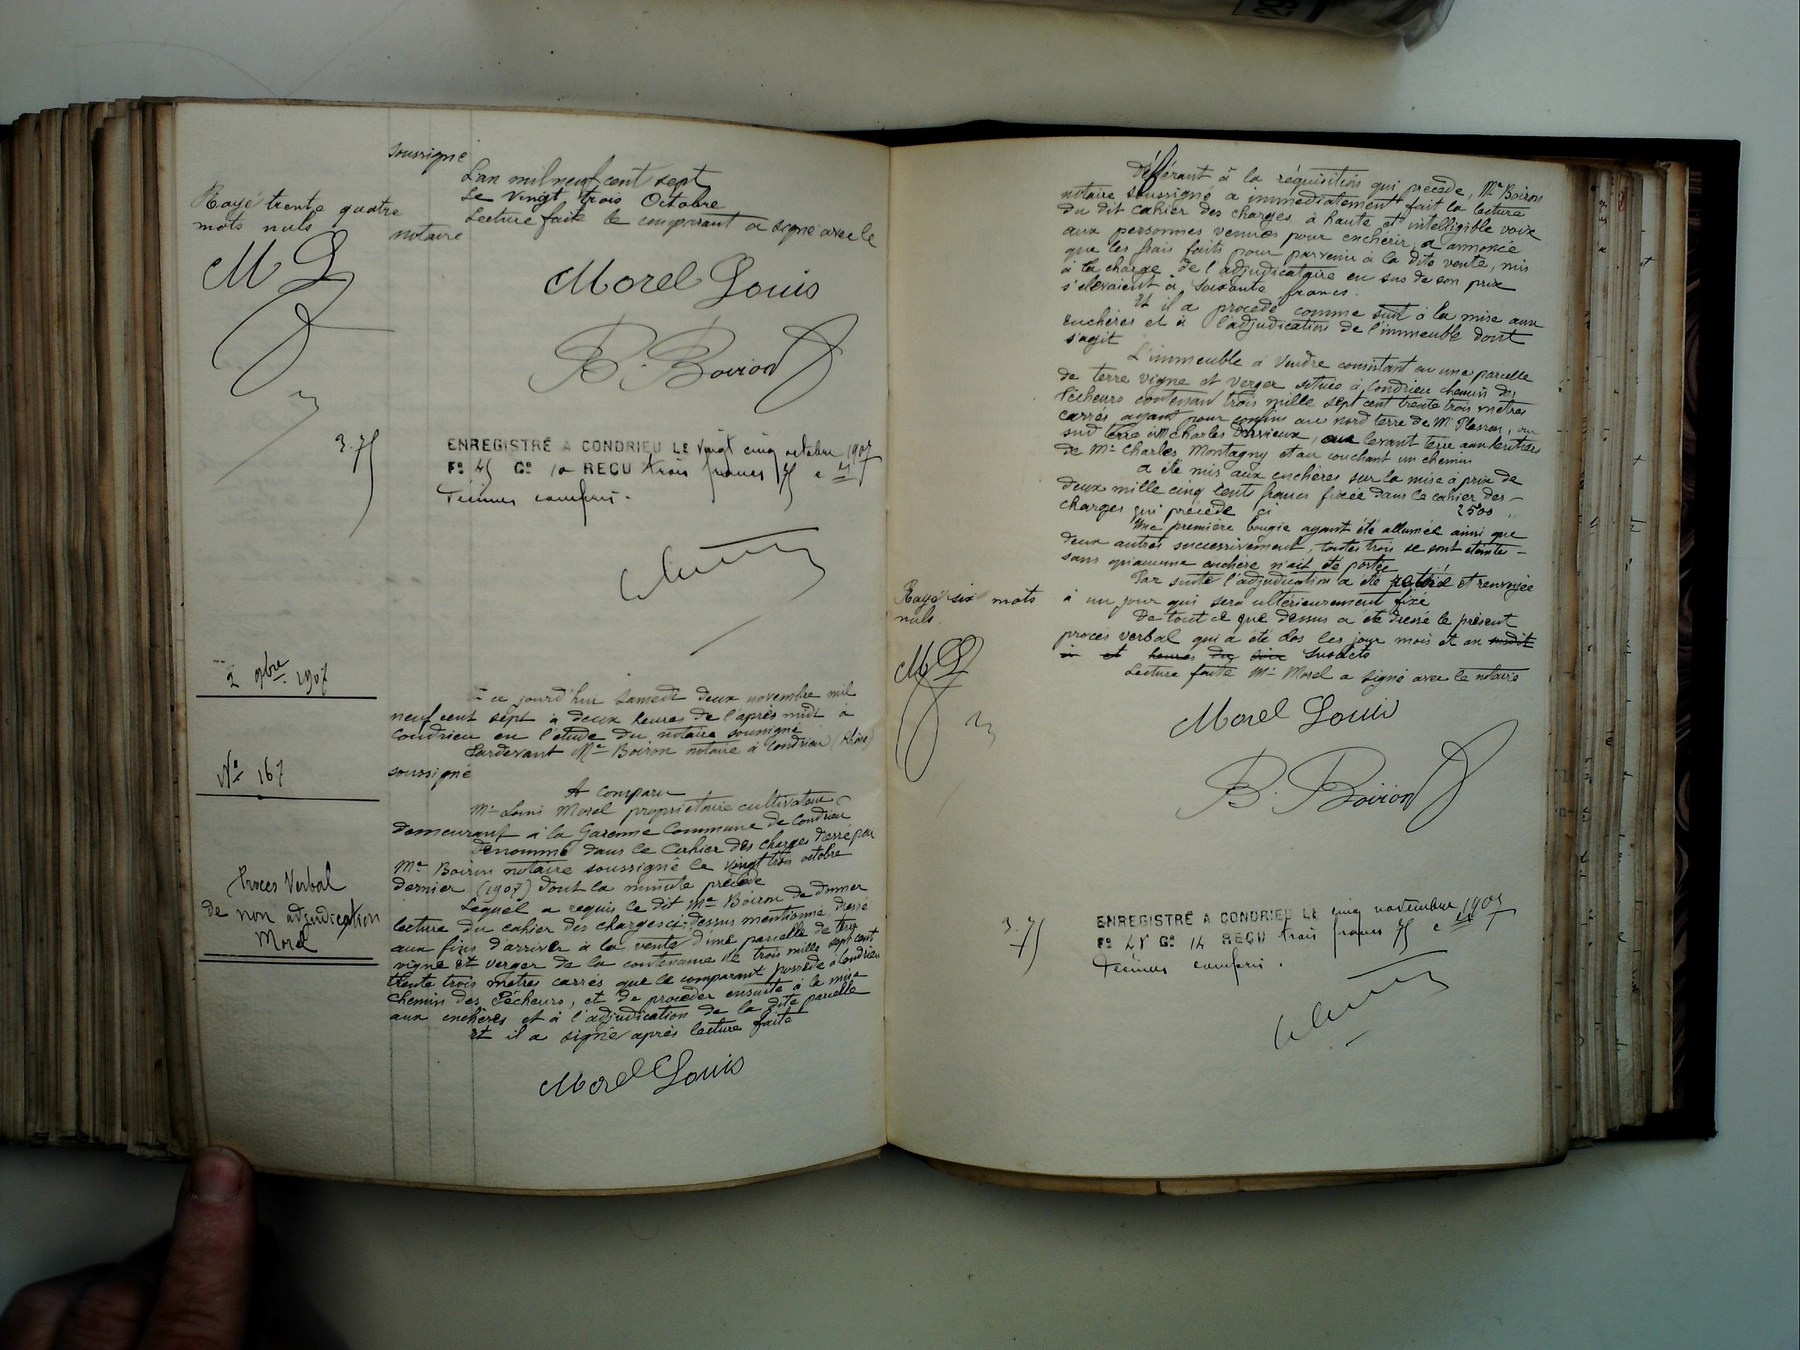 soussigné
L'an mil neuf cent sept
Le vingt trois Octobre
Lecture faite le comparant a signé avec le
notaire
Rayé trente quatre
mots nuls
M L
Morel Louis
B. Boiron
3.75
ENREGISTRÉ A CONDRIEU LE vingt cinq octobre 1907
F° 45 C° 10 REÇU trois francs 75 c
Décimes compris.
2 9bre 1907
N° 167
Procès Verbal
de non adjudication
Morel
Et ce jourd'hui samedi deux novembre mil
neuf cent sept à deux heures de l'après midi à
Condrieu en l'étude du notaire soussigné
Pardevant Me Boiron notaire à Condrieu (Rhône)
soussigné
A comparu
Mr Louis Morel propriétaire cultivateur
demeurant à la Garenne Commune de Condrieu
Dénommé dans le Cahier des charges dressé par
Me Boiron notaire soussigné le vingt trois octobre
dernier (1907) dont la minute précède
Lequel a requis le dit Me Boiron de donner
lecture du cahier des charges ci-dessus mentionné, dressé
aux fins d'arriver à la vente d'une parcelle de terre
vigne et verger de la contenance de trois mille sept cent
trente trois mètres carrés que le comparant possède à Condrieu
chemin des Pêcheurs, et de procéder ensuite à la mise
aux enchères et à l'adjudication de la dite parcelle
Et il a signé après lecture faite
Morel Louis
Déférant à la réquisition qui précède, Me Boiron
notaire soussigné a immédiatement fait la lecture
du dit cahier des charges à haute et intelligible voix
aux personnes venues pour enchérir, a annoncé
que les frais faits pour parvenir à la dite vente, mis
à la charge de l'adjudicataire en sus de son prix
s'élevaient à soixante francs.
Et il a procédé comme suit à la mise aux
enchères et à l'adjudication de l'immeuble dont
s'agit
L'immeuble à vendre consistant en une parcelle
de terre vigne et verger située à Condrieu chemin des
Pêcheurs contenant trois mille sept cent trente trois mètres
carrés ayant pour confins au nord terre de Mr
sud terre à Mr Charles Dervieux, au levant terre aux héritiers
de Mr Charles Montagny et au couchant un chemin
a été mis aux enchères sur la mise à prix de
deux mille cinq cents francs fixée dans le cahier des
charges qui précède ci 2500
Une première bougie ayant été allumée ainsi que
deux autres successivement, toutes trois se sont éteintes
sans qu'aucune enchère n'ait été portée
Par suite l'adjudication a été retirée et renvoyée
à un jour qui sera ultérieurement fixé
De tout ce que dessus a été dressé le présent
procès verbal qui a été clos les jour mois et an susdit
et heures susdits
Lecture faite Mr Morel a signé avec le notaire
Rayé six mots
nuls.
M L
Morel Louis
B. Boiron
3.75
ENREGISTRÉ A CONDRIEU LE cinq novembre 1907
F° 48 C° 14 REÇU trois francs 75 c
Décimes compris.